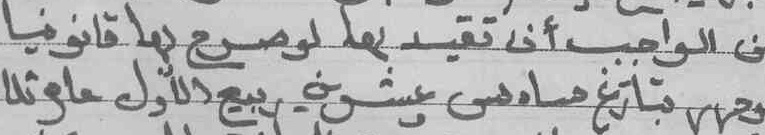 من الواجب أن تقيد بها لو صرح بها قانونيا
وحرر بتاريخ سادس عشرين ربيع الأول عام ثلا